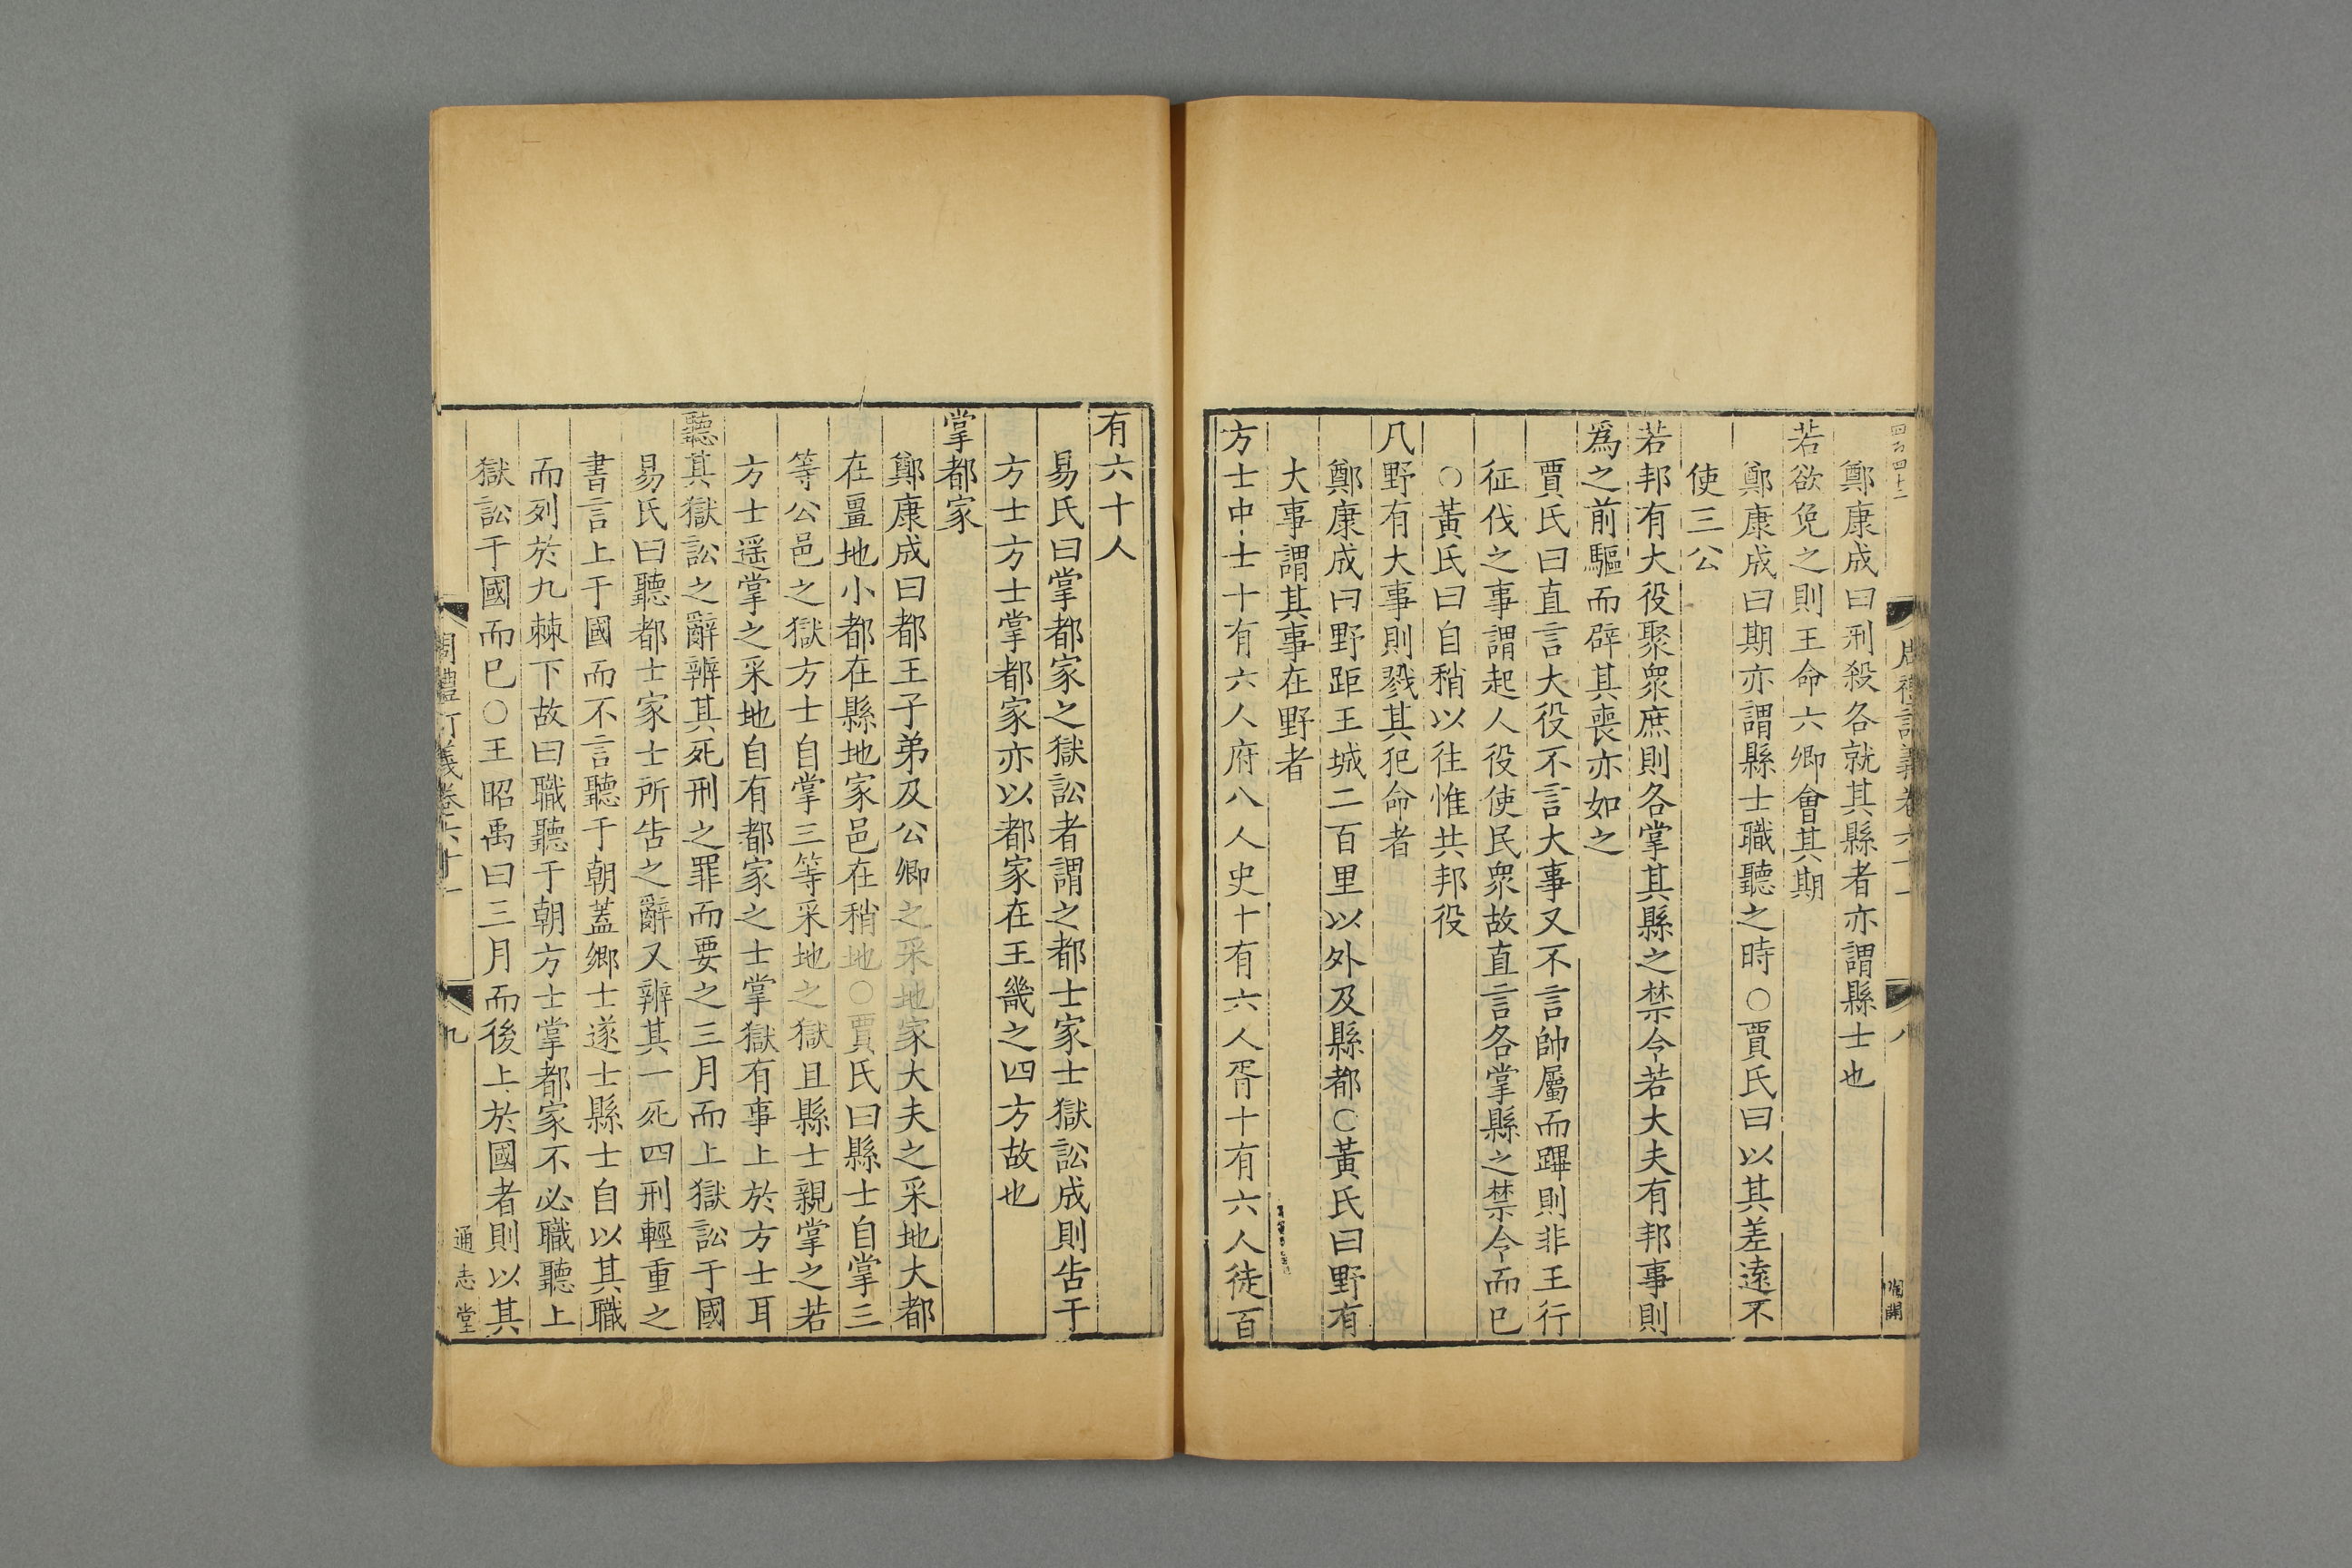 四百四十二
周禮訂義卷六十一
八
鄭康成曰刑殺各就其縣者亦謂縣士也
若欲免之則王命六卿會其期
鄭康成曰期亦謂縣士職聽之時○賈氏曰以其差遠不
使三公
若邦有大役聚衆庶則各掌其縣之禁令若大夫有邦事則
爲之前驅而辟其喪亦如之
賈氏曰直言大役不言大事又不言帥屬而蹕則非王行
征伐之事謂起人役使民衆故直言各掌縣之禁令而已
○黃氏曰自稍以往惟共邦役
凡野有大事則戮其犯命者
鄭康成曰野距王城二百里以外及縣都○黃氏曰野有
大事謂其事在野者
方士中士十有六人府八人史十有六人胥十有六人徒百
有六十人
易氏曰掌都家之獄訟者謂之都士家士獄訟成則告于
方士方士掌都家亦以都家在王畿之四方故也
掌都家
鄭康成曰都王子弟及公卿之采地家大夫之采地大都
在畺地小都在縣地家邑在稍地○賈氏曰縣士自掌三
等公邑之獄方士自掌三等采地之獄且縣士親掌之若
方士遥掌之采地自有都家之士掌獄有事上於方士耳
聽其獄訟之辭辨其死刑之罪而要之三月而上獄訟于國
易氏曰聽都士家士所告之辭又辨其一死四刑輕重之
書言上于國而不言聽于朝蓋鄉士遂士縣士自以其職
而列於九棘下故曰職聽于朝方士掌都家不必職聽上
獄訟于國而已○王昭禹曰三月而後上於國者則以其
周禮訂義卷六十一
九
通志堂